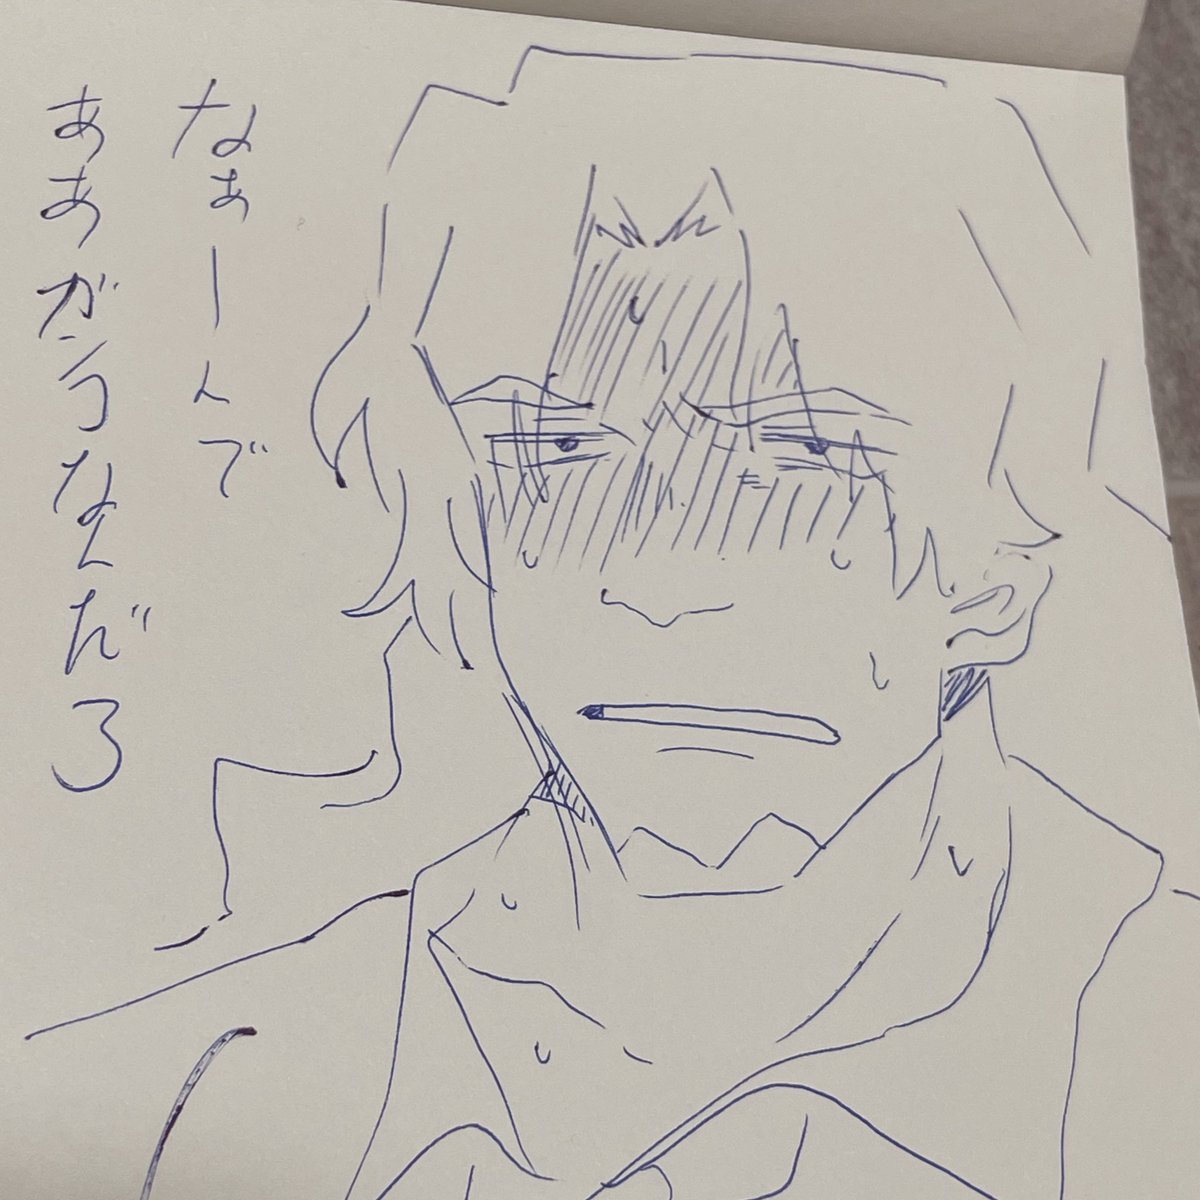 なぁーんで
ああガうなんだろ